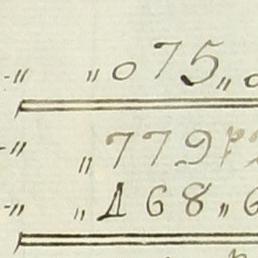 -" "075"0
-" "779
-" "168"6